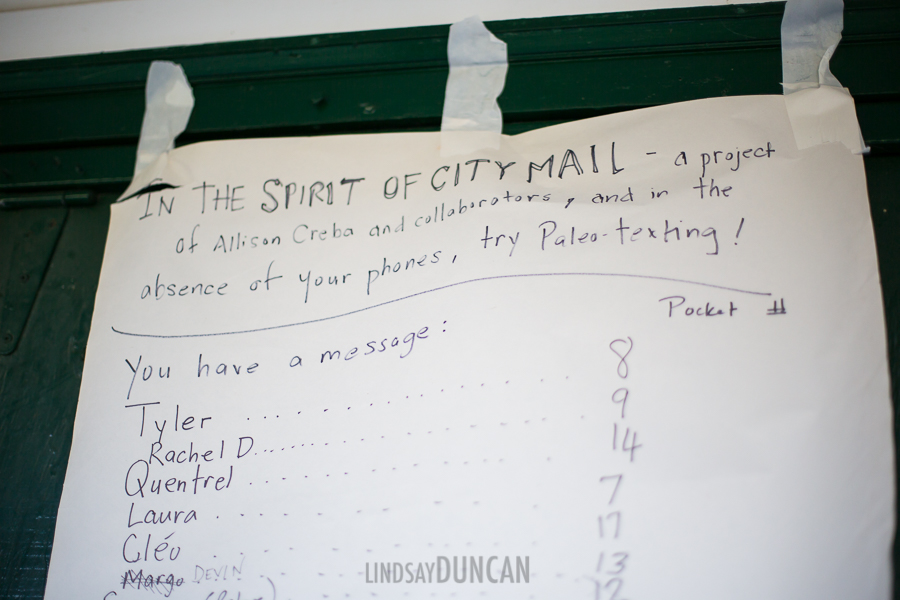 IN THE SPIRIT OF CITY MAIL - a project
of Allison Creba and collaborators, and in the
absence of your phones, try Paleo-texting!
Pocket #
You have a message:
Tyler ............ 8
Rachel D............ 9
Quentrel ............ 14
Laura ............ 7
Cléo ............ 17
Margo DEVIN ............ 13
12
LINDSAYDUNCAN